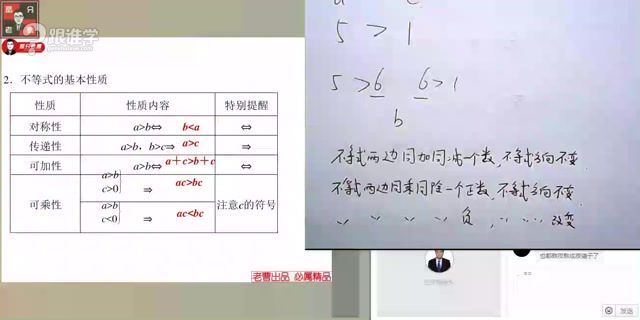 高分
老曹
跟谁学
2. 不等式的基本性质
性质 性质内容 特别提醒
对称性 a>b⇔ b<a ⇔
传递性 a>b, b>c⇒ a>c ⇒
可加性 a>b⇔ a+c>b+c ⇔
可乘性 a>b c>0 ⇒ ac>bc 注意c的符号
a>b c<0 ⇒ ac<bc
老曹出品 必属精品
5 > 1
5 > 6 6 > 1
b
不等式两边同加同减一个数, 不等式方向不变
不等式两边同乘同除一个正数, 不等式方向不变
〃 〃 〃 〃 负, 〃 〃 改变
发送